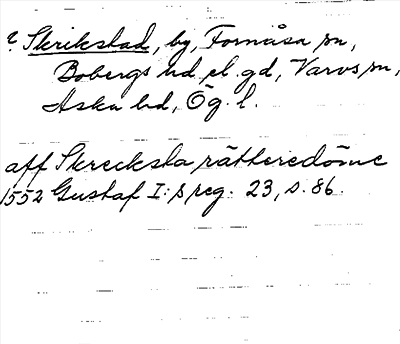 ? Skrikstad, by, Fornåsa sn,
Bobergs hd, el. gd, Varvs sn,
Aska hd, Ög. l.
aff Skrecksta rättheredöme
1552 Gustaf I:s reg. 23, s. 86.